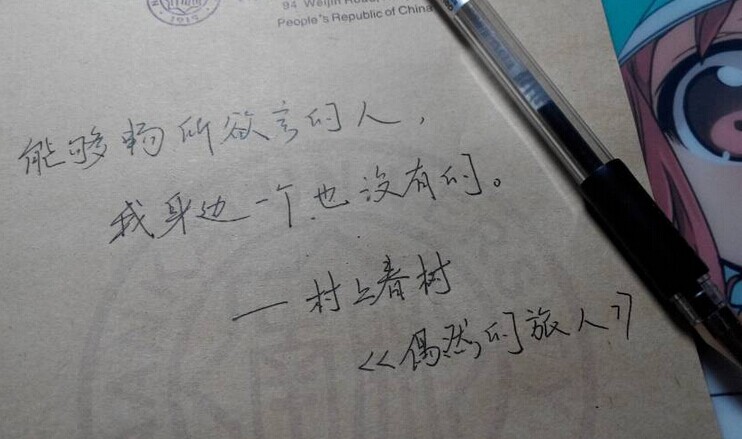 94 Weijin Road,
People's Republic of China
1919
能够畅所欲言的人，
我身边一个也没有的。
—村上春树
《偶然的旅人》